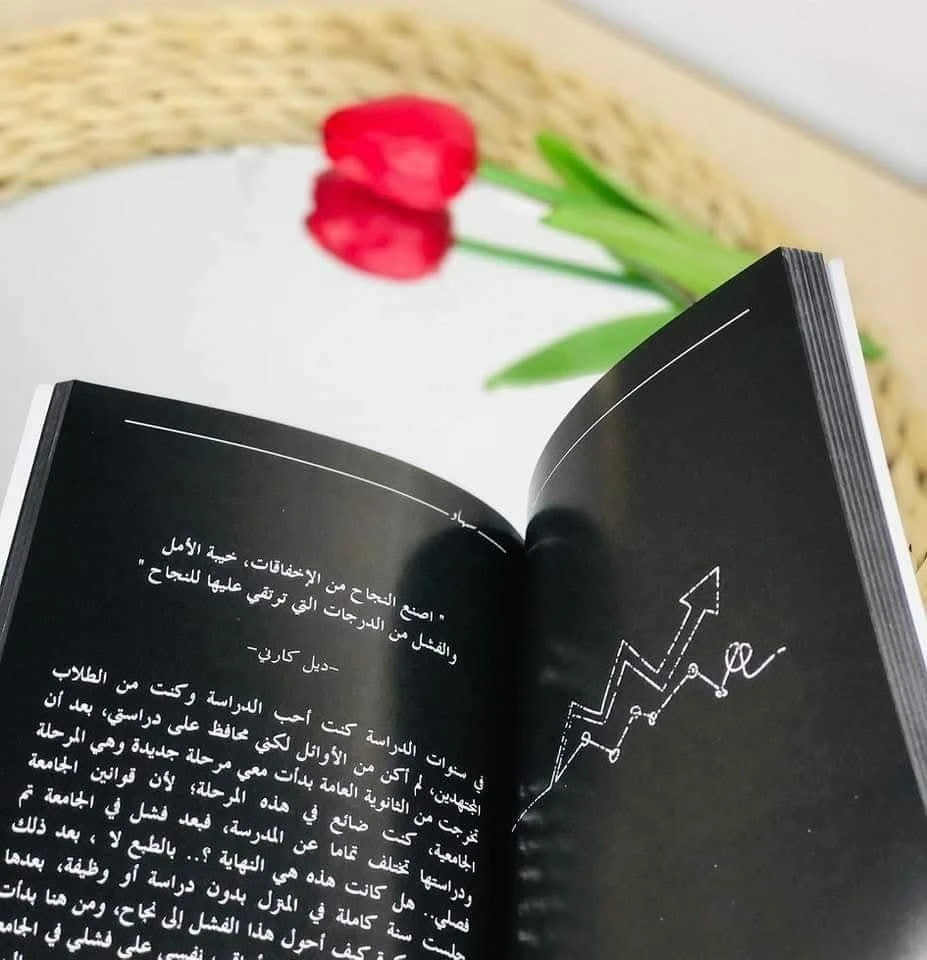 سهاد
" اصنع النجاح من الإخفاقات، خيبة الأمل
والفشل من الدرجات التي ترتقي عليها للنجاح "
-ديل كارني-
في سنوات الدراسة كنت أحب الدراسة وكنت من الطلاب
المجتهدين، لم أكن من الأوائل لكني محافظ على دراستي، بعد أن
تخرجت من الثانوية العامة بدأت معي مرحلة جديدة وهي المرحلة
الجامعية، كنت ضائع في هذه المرحلة؛ لأن قوانين الجامعة
ودراستها تختلف تماما عن المدرسة، فبعد فشل في الجامعة تم
فصلي.. هل كانت هذه هي النهاية ؟.. بالطبع لا ، بعد ذلك
جلست سنة كاملة في المنزل بدون دراسة أو وظيفة، بعدها
كيف أحول هذا الفشل إلى نجاح، ومن هنا بدأت
نفسي على فشلي في